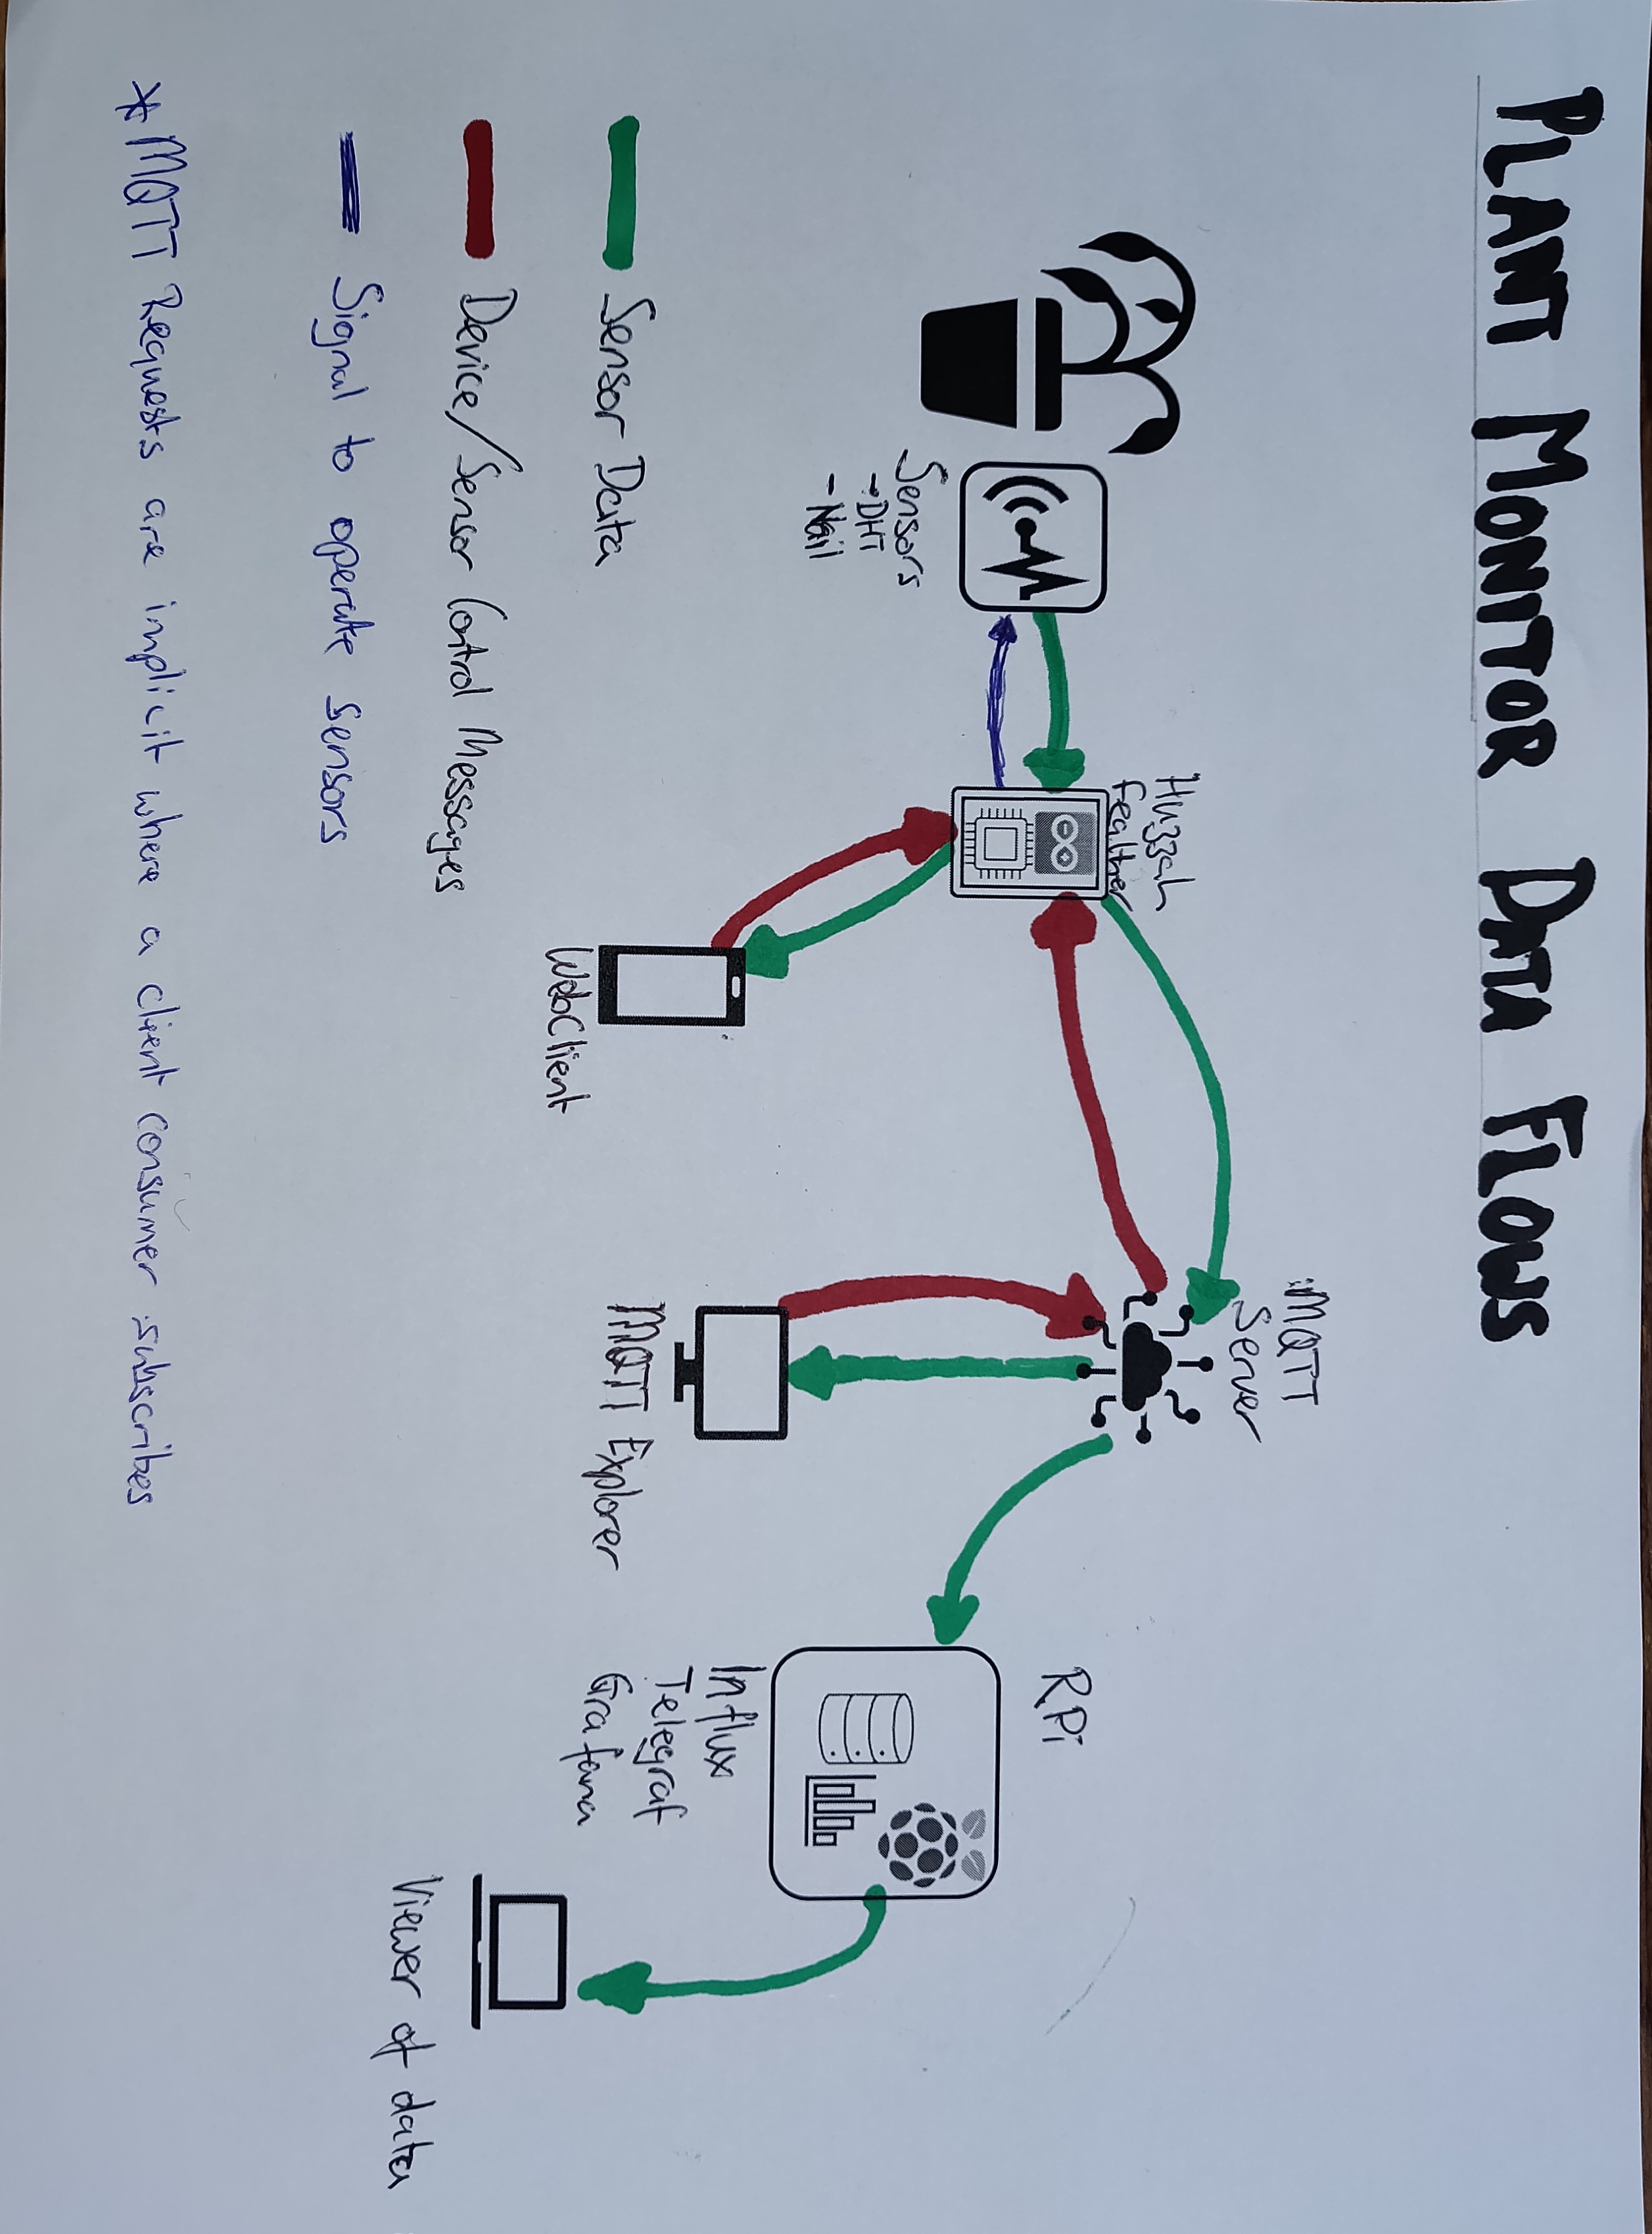 PLANT MONITOR DATA FLOWS
MQTT
Server
Huzzah
Feather
RPi
Sensors
→ DHT
- Nail
Influx
Telegraf
Grafana
MQTT Explorer
WebClient
Viewer of data
Sensor Data
Device/Sensor Control Messages
Signal to operate sensors
* MQTT Requests are implicit where a client consumer subscribes